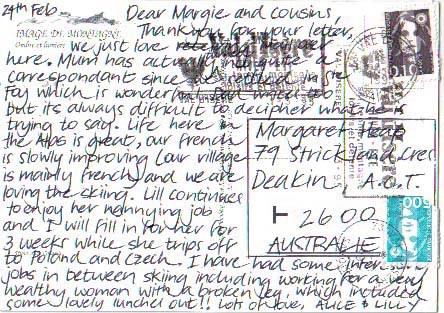 24th Feb
IMAGE DE MONTAGNE
Ombre et lumière
Dear Margie and cousins,
Thank you for your letter,
we just love
here. Mum has actually quite a
correspondant since
Fay which is wonderful
but its always difficult to decipher what she is
trying to say. Life here in
the Alps is great, our french
is slowly improving (our village
is mainly french) and we are
loving the skiing. Lill continues
to enjoy her nannying job
and I will fill in for her for
3 weeks while she trips off
to Poland and Czech. I have had some
jobs in between skiing including working for a very
wealthy woman with a broken leg, which included
some lovely lunches out!! Lots of love, ALICE & LILLY
Margaret Heap
79 Strickland Cres.
Deakin, A.C.T.
2600
AUSTRALIE
0,10